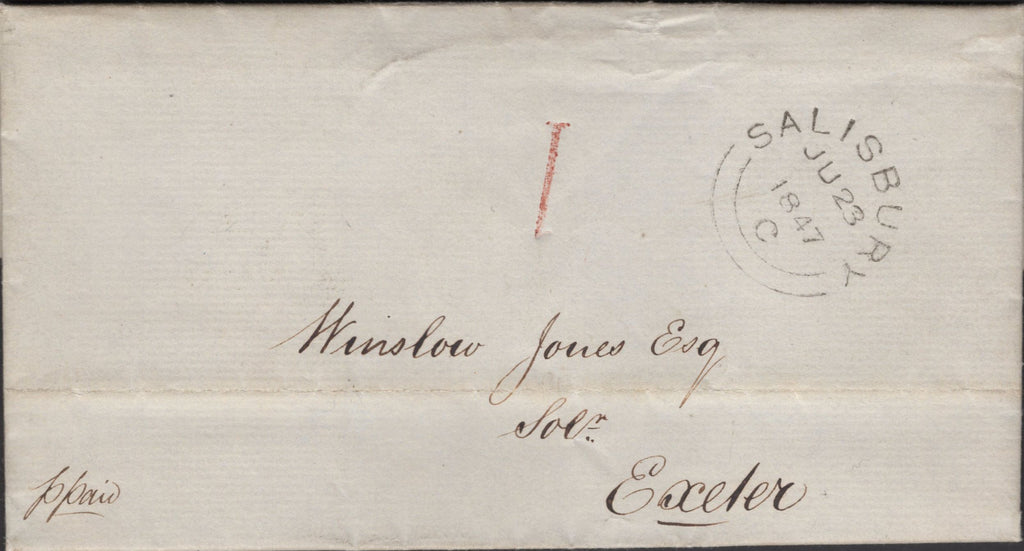 SALISBURY
JU 23
1847
C
1
Winslow Jones Esq
Solr.
Exeter
ppaid